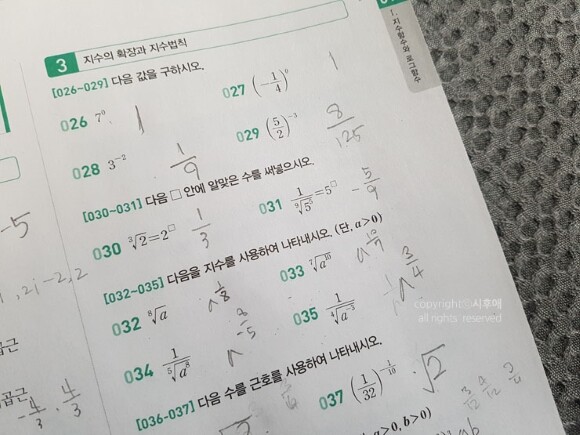 3 지수의 확장과 지수법칙
[026~029] 다음 값을 구하시오.
026 7⁰ 1
027 (-1/4)⁰ 1
028 3⁻² 1/9
029 (5/2)⁻³ 8/125
[030~031] 다음 □ 안에 알맞은 수를 써넣으시오.
030 ³√2=2^□ 1/3
031 1/⁹√5⁵=5^□ -5/9
[032~035] 다음을 지수를 사용하여 나타내시오. (단, a>0)
032 ⁸√a a^(1/8)
033 ⁷√a¹⁰ a^(10/7)
034 1/⁵√a³
035 1/⁴√a⁻³ a^(3/4)
[036~037] 다음 수를 근호를 사용하여 나타내시오.
037 (1/32)^(-1/10) √2
a>0, b>0)
곱근
-5
Ⅰ. 지수함수와 로그함수
copyright ⓒ시후애
all rights reserved